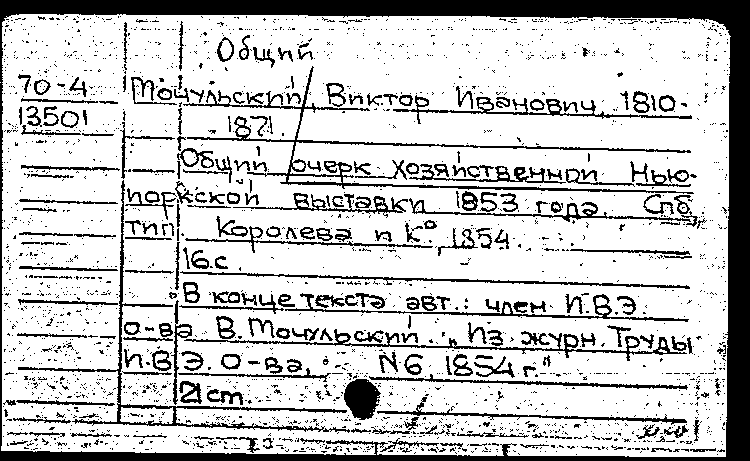 Общий
70-4 Мочульский, Виктор Иванович, 1810-
13501 1871.
Общий очерк хозяйственной Нью-
иоркской выставки 1853 года. Спб,
тип. Королева и К°, 1854.
16 с.
В конце текста авт.: член И.В.Э.
о-ва В. Мочульский. "Из журн. Труды
И.В.Э. О-ва, N6, 1854 г."
21 cm.